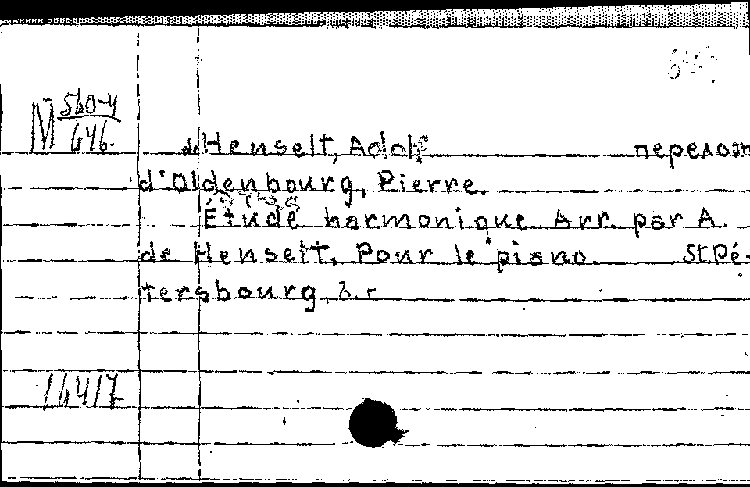 M 560-4
646.
de Henselt, Adolf перелож
d'Oldenbourg, Pierre.
Étude harmonique Arr. par A.
de Henselt. Pour le piano. St Pé-
tersbourg, б. г
16417